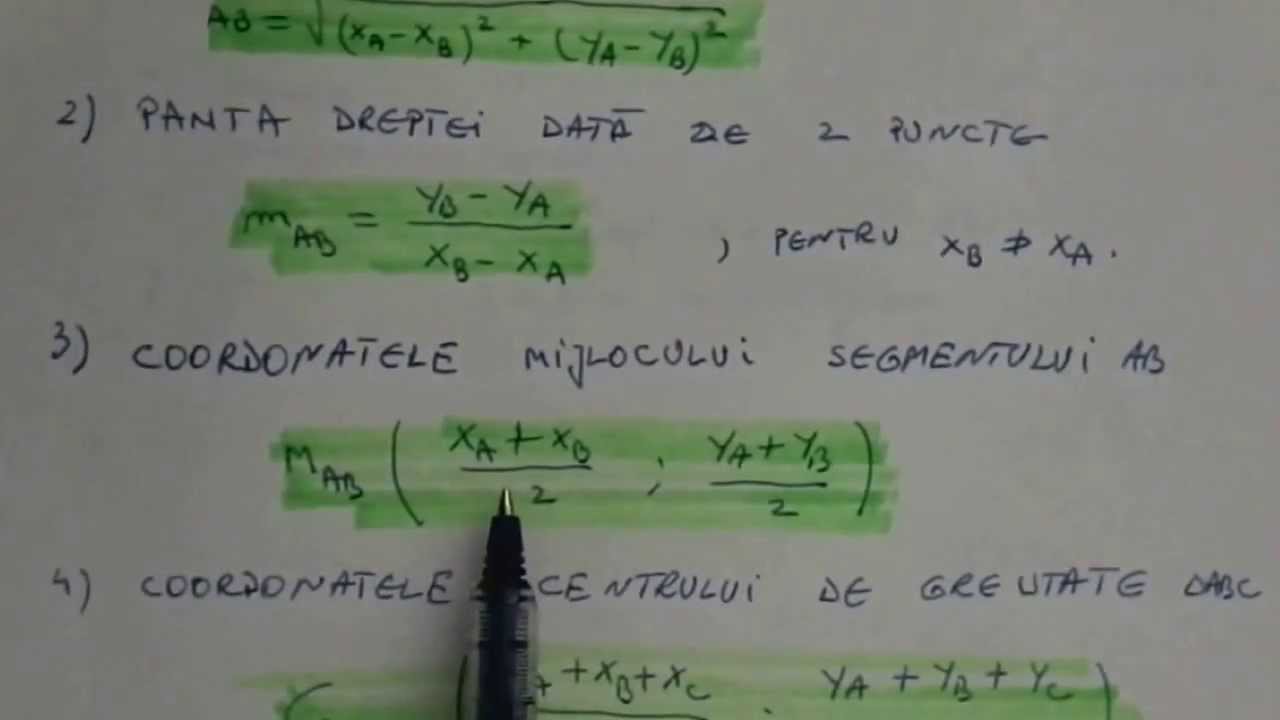 AB = √(xA - xB)² + (yA - yB)²
2) PANTA DREPTEi DATĂ DE 2 PUNCTE
mAB = yB - yA / xB - xA , PENTRU xB ≠ xA.
3) COORDONATELE MiJLOCULUi SEGMENTULUi AB
MAB ( xA + xB / 2 ; yA + yB / 2 )
4) COORDONATELE CENTRULUi DE GREUTATE ΔABC
+ xB + xC yA + yB + yC